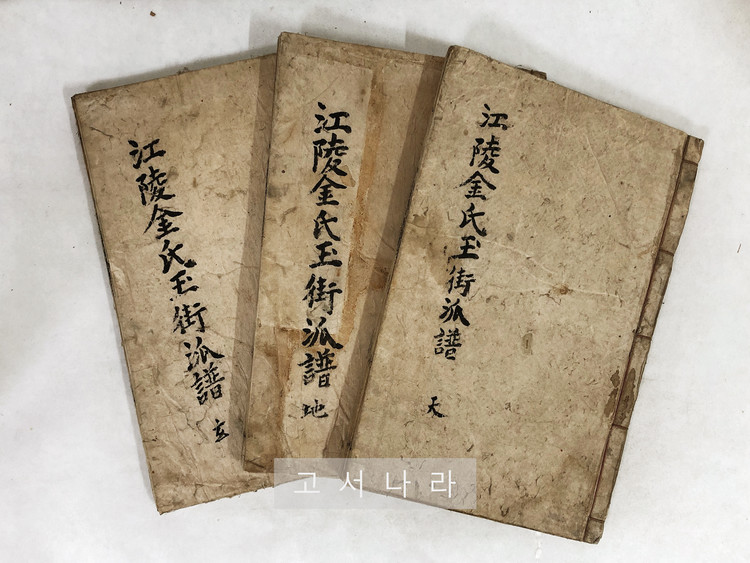 江陵金氏玉街派譜
天
江陵金氏玉街派譜
地
江陵金氏玉街派譜
玄
고서나라